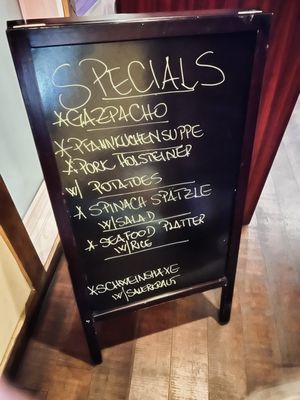 SPECIALS
*GAZPACHO
*PFANNKUCHENSUPPE
*PORK HOLSTEINER
W/ POTATOES
*SPINACH SPATZLE
W/SALAD
*SEAFOOD PLATTER
W/RICE
*SCHWEINSHAXE
W/SAUERKRAUT